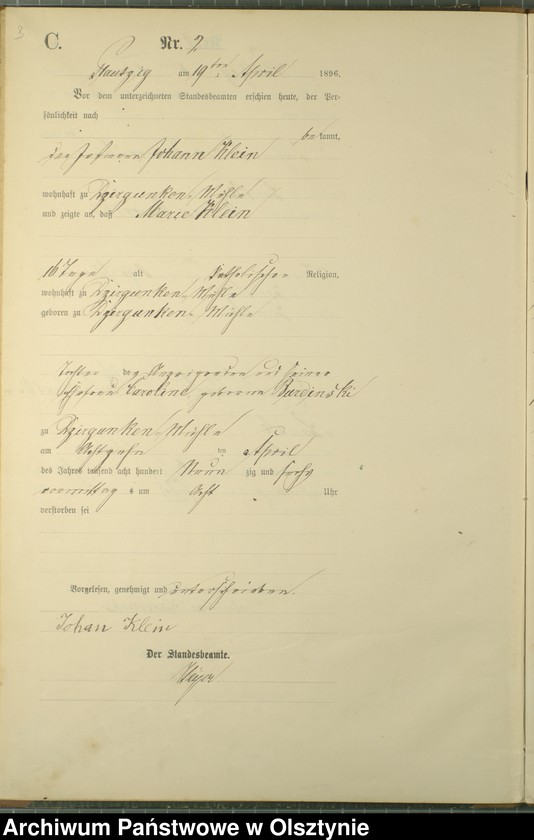 3
C. Nr. 2
am 19ten April 1896.
Vor dem unterzeichneten Standesbeamten erschien heute, der Per-
sönlichkeit nach
be kannt,
der Johann Klein
wohnhaft zu Dziergunken Mühle
und zeigte an, daß Marie Klein
16 Tage alt katholischer Religion,
wohnhaft zu Dziergunken Mühle
geboren zu Dziergunken Mühle
Tochter des Anzeigenden und seiner
Ehefrau Caroline, geborene Bardinski
zu Dziergunken Mühle
am Achtzehn ten April
des Jahres tausend acht hundert Neun zig und sechs
vormittag s um Acht Uhr
verstorben sei
Vorgelesen, genehmigt und unterschrieben.
Johan Klein
Der Standesbeamte.
Archiwum Państwowe w Olsztynie